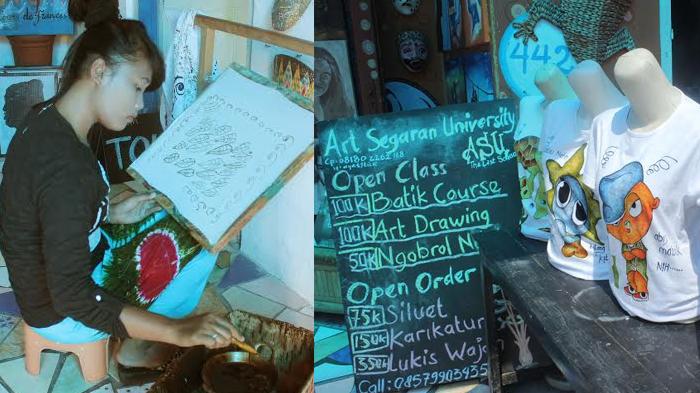 de Frances
TO
442
Art Segaran University
Open Class
ASU
The Last School
100K Batik Course
100K Art Drawing
50K Ngobrol N
Open Order
75K Siluet
150K Karikatur
350K Lukis Waja
Call: 08579903935